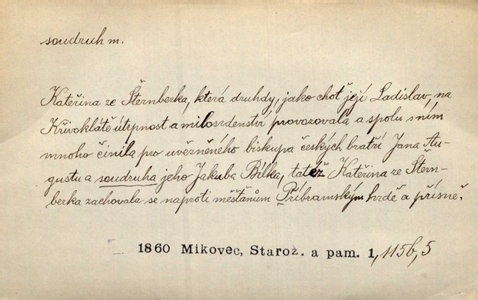 soudruh m.
Kateřina ze Šternberka, která druhdy, jako choť její Ladislav, na
Křivoklátě útrpnost a milosrdenství provozovala a spolu s ním
mnoho činila pro uvězněného biskupa českých bratří Jana Au-
gustu a soudruha jeho Jakuba Bílka, tatéž Kateřina ze Štern-
berka zachovala se naproti měšťanům Příbramským hrdě a přísně.
1860 Mikovec, Starož. a pam. 1, 115b, 5